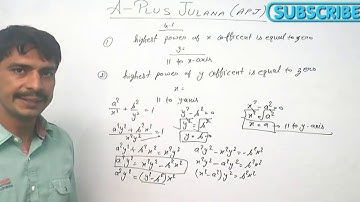 A-PLUS JULANA (APJ)
SUBSCRIBE
4.1
① highest power of x cofficent is equal to zero
y =
11 to x-axis
② highest power of y cofficent is equal to zero
x =
11 to yaxis
a²/x² + b²/y² = 1
a²y² + b²x² / x²y² = 1
a²y² + b²x² = x²y²
a²y² = x²y² - b²x²
a²y² = (y² - b²)x²
y² - b² = 0
y² = b²
y = b
x² - a² = 0
x² = a²
x = a → 11 to y-axis
a²y² - x²y² = -b²x²
x²y² - a²y² = b²x²
(x² - a²)y² = b²x²